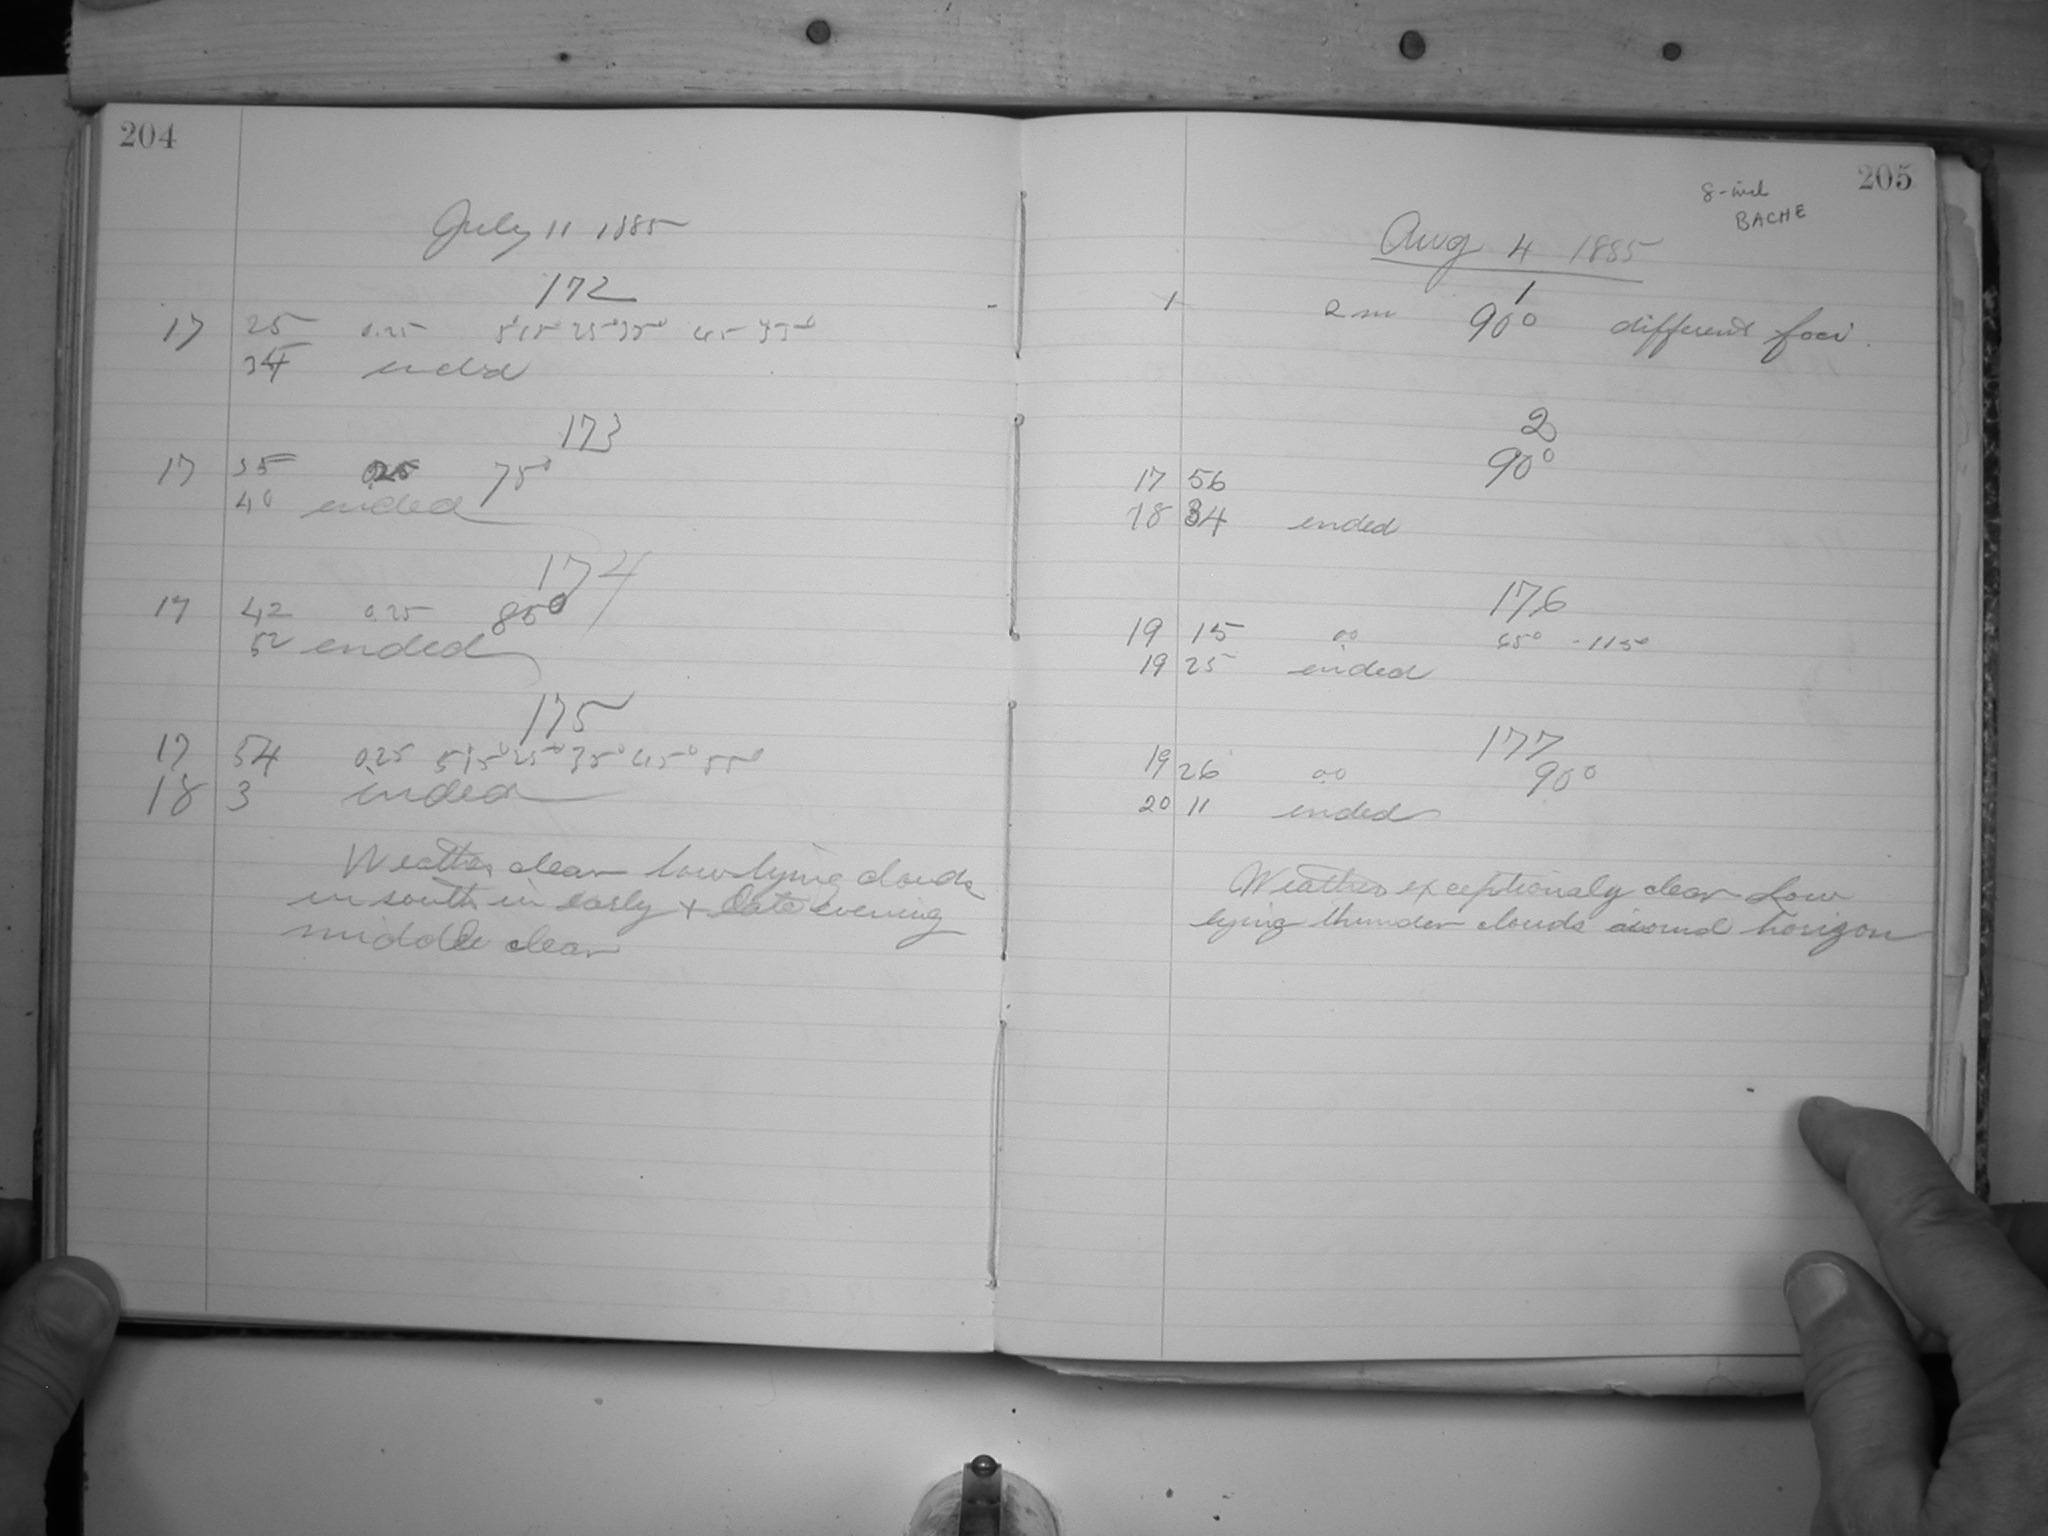 204
July 11 1885
172
17 25 0.25 5° 15° 25° 35° 45 55°
34 ended
173
17 35 0.25 75°
40 ended
174
17 42 0.25 85°
52 ended
175
17 54 0.25 5° 15° 25° 35° 45° 55°
18 3 ended
Weather clear low lying clouds
in south in early + late evening
middle clear
205
8-inch
BACHE
Aug 4 1885
1
1 2m 90° different foci.
2
90°
17 56
18 34 ended
176
19 15 00 65° -115°
19 25 ended
177
19 26 00 90°
20 11 ended
Weather exceptionaly clear Low
lying thunder clouds around horizon